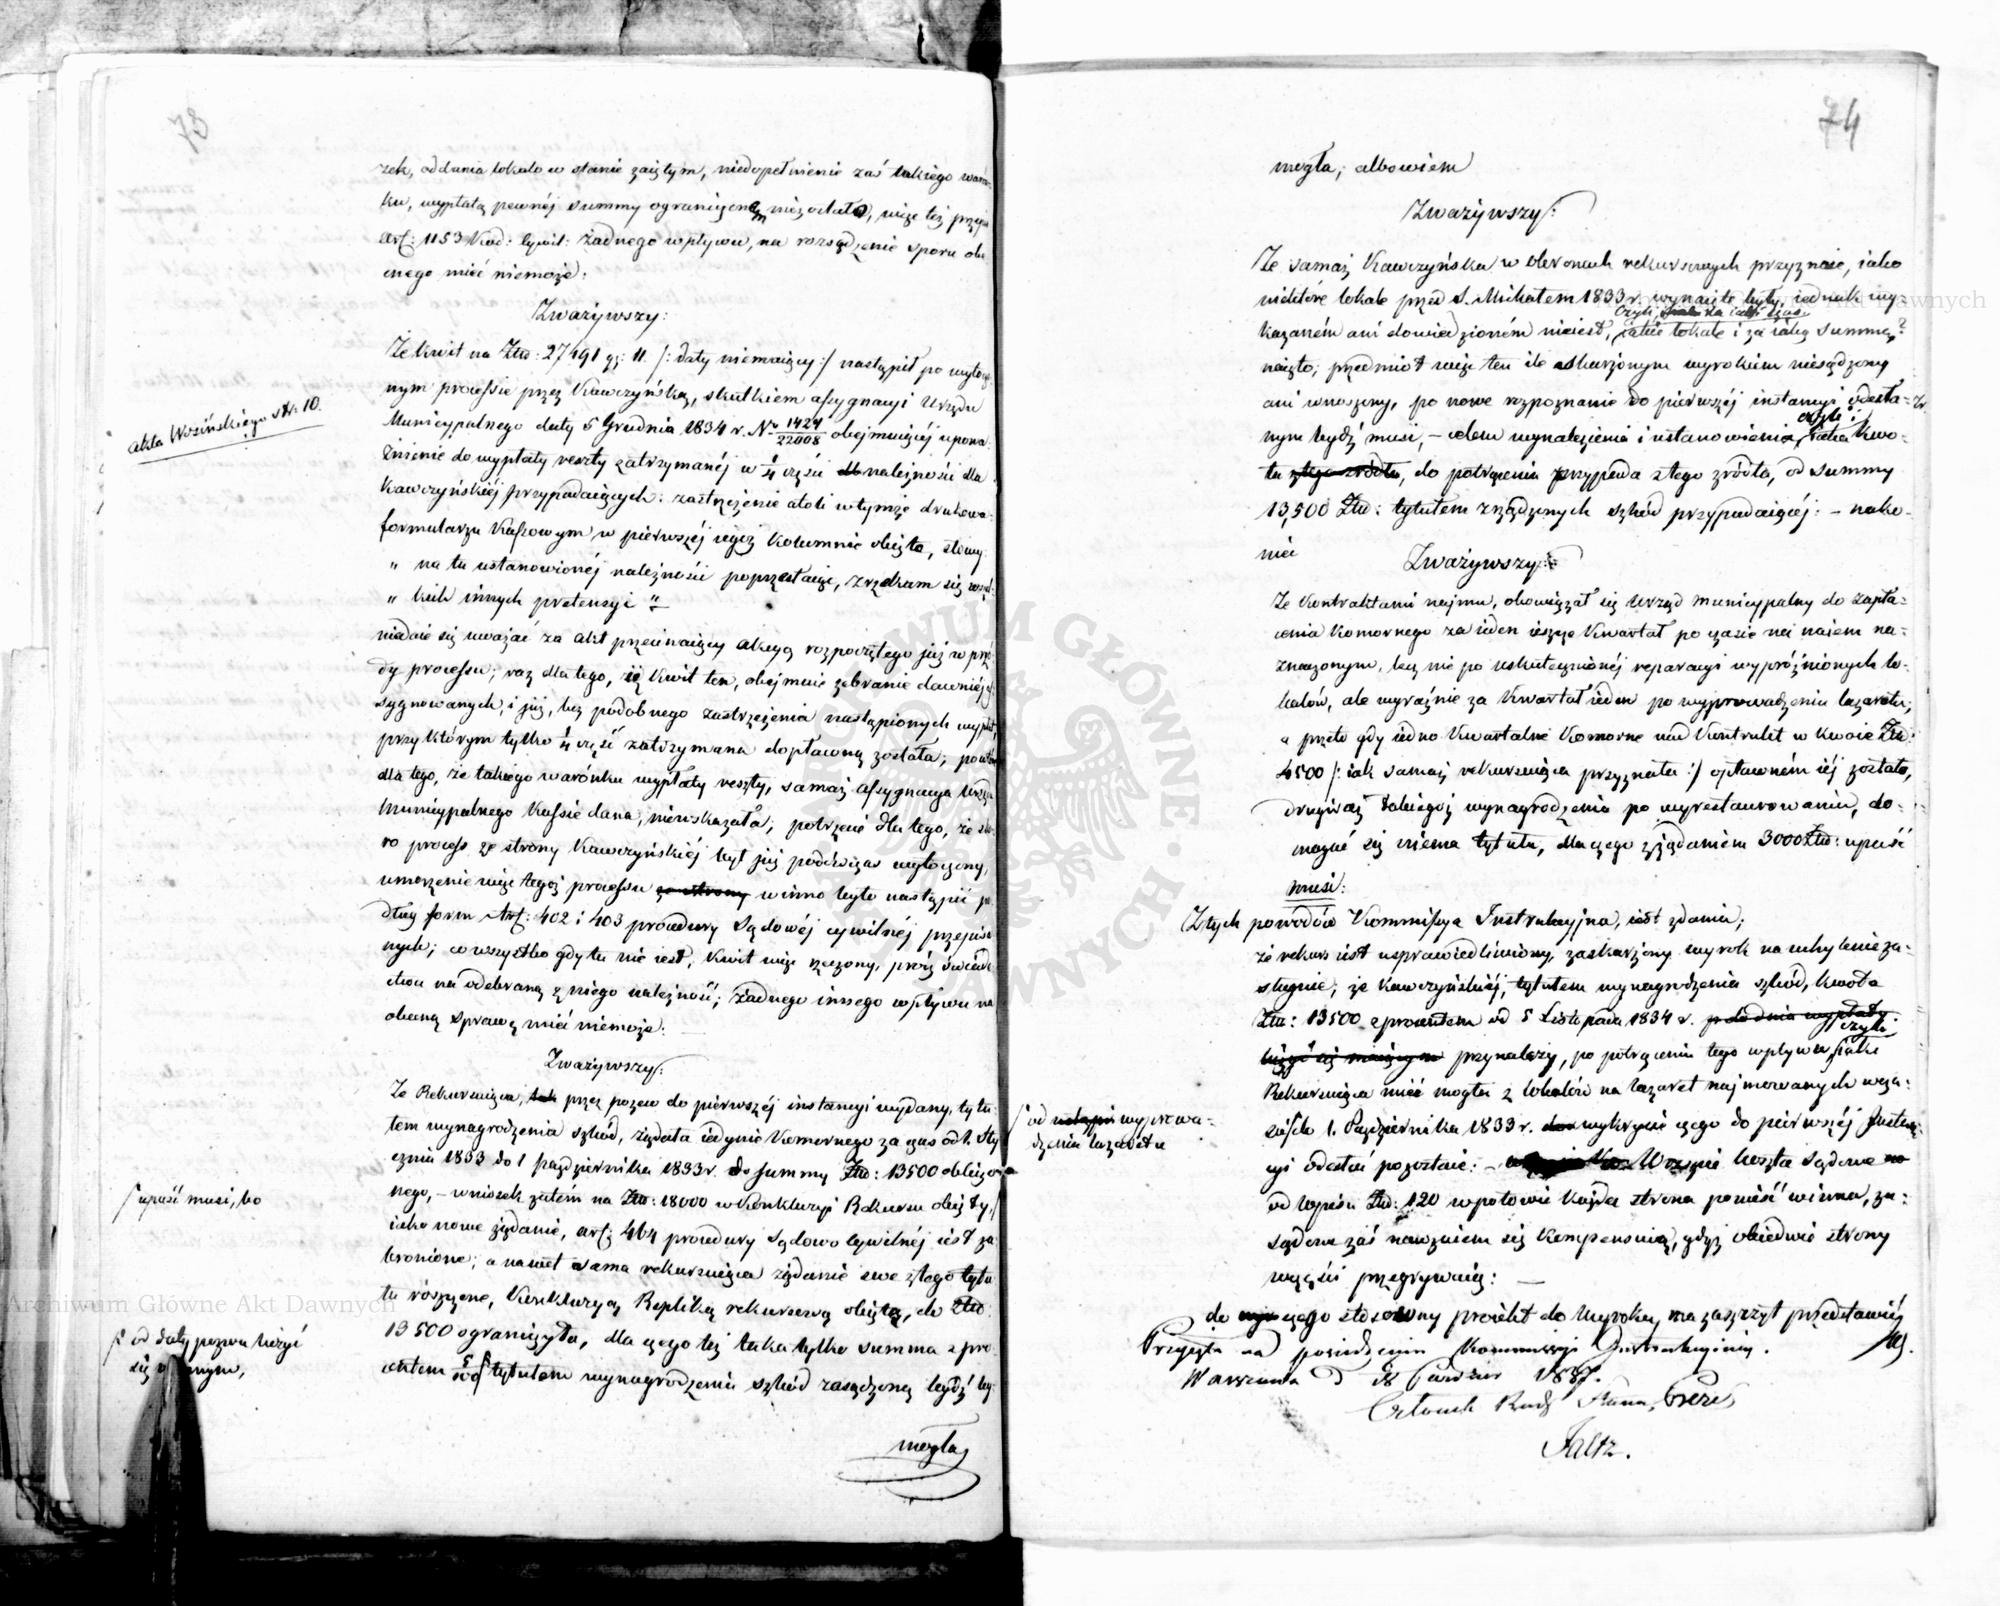 73
zek, oddania lokalu w stanie zaiętym, niedopełnienie zaś takiego warun-
ku, wypłatą pewnéj summy ograniczoném niezostało, więc też przepis
art: 1153 Kod: Cywil: żadnego wpływu, na rozsądzenie sporu obe-
cnego mieć niemoże:
Zważywszy:
Że kwit na Złtp: 27191 gr: 11. /: daty niemaiący :/ nastąpił po wytoczo-
nym processie przez Kawczyńską, skutkiem assygnacyi Urzędu
Municypalnego daty 5 Grudnia 1834 r. No 1424/22008 obejmuiącéj upowa-
żnienie do wypłaty reszty zatrzymanéj w 1/4 części należności dla
Kawczyńskiéj przypadaiących: zastrzeżenie atoli w tymże drukowa-
formularzu Kassowym, w pierwszéj iegoż kolumnie obięte, słowy
" na tu ustanowionéj należności poprzestaię, zrzekam się wszel-
" kich innych pretensyi "
niedaie się uważać za akt przecinaiący akcyą rozpoczętego już w prze-
dy processu; raz dla tego, iż kwit ten, obejmuie zebranie dawniéj as-
sygnowanych, i już, bez podobnego zastrzeżenia nastąpionych wypłat,
przy którym tylko 1/4 część zatrzymana dopłaconą została; powtóre
dla tego, że takiego warónku wypłaty reszty, samaż assygnacya Urzędu
Municypalnego Kassie dana, niewskazała; potrzecie dla tego, że sko-
ro process ze strony Kawczyńskiéj był już podówczas wytoczony,
umorzenie więc tegoż processu ze strony winno było nastąpić po-
dług form Art: 402 i 403 procedury Sądowéj cywilnéj przepisa-
nych; co wszystko gdy tu nie iest, kwit więc rzeczony, prócz świade-
ctwa na odebraną z niego należność, żadnego innego wpływu na
obecną sprawę mieć niemoże:
Zważywszy:
Że Rekurrująca, przez pozew do pierwszéj instancyi wydany, tytu-
łem wynagrodzenia szkód, żądała iedynie komornego za czas od 1. Sty-
cznia 1833 do 1 Października 1833 r. do summy Złtp: 13500 obliczo-
nego, – wniosek zatém na Złtp: 18000 w konkluzyi Rekursu obięty,/
iako nowe żądanie, art: 464 procedury Sądowo Cywilnéj iest za-
bronione; a nawet sama rekurrująca żądanie swe z tego tytu-
łu rószczone, konkluzyą Repliką rekursową obiętą, do Złtp.
13500 ograniczyła, dla czego też taka tylko summa z pro-
centem 5/100 / tytułem wynagrodzenia szkód zasądzoną bydź by-
mogła
akta Wosińskiego str: 10.
/ upaść musi, bo
/ od daty pozwu liczyć
się
74
mogła; albowiem
Zważywszy:
Że samaż Kawczyńska w obronach rekursowych przyznaie, iako
niektóre lokale przed S. Michałem 1833 r. wynaięte były, iednak wy-
czyli, na iaki czas
kazaném ani dowiedzioném nieiest, iakie lokale i za iaką summę?
naięto; przedmiot więc ten ile zaskarżonym wyrokiem niesądzony
ani wnoszony, po nowe rozpoznanie do pierwszéj instancyi odesła-
nym bydź musi, – celem wynalezienia i ustanowienia, czyli i iaka kwo-
ta z tego źródła, do potrącenia przypada z tego źródła, od summy
13,500 Złtp: tytułem zrządzonych szkód przypadaiącéj: – nako-
niec
Zważywszy:
Że kontraktami najmu, obowiązał się Urząd Municypalny do zapła-
cenia komornego za ieden ieszcze kwartał po czasie na naiem na-
znaczonym, lecz nie po uskutecznionéj reparacyi wypróżnionych lo-
kalów, ale wyraźnie za kwartał ieden po wyprowadzeniu lazaretu;
a przeto gdy iedno kwartalne komorne nad kontrakt w kwocie Złtp:
4500 /: iak samaż rekurrująca przyznała :/ opłaconém iéj zostało,
drugiegoż takiegoż wynagrodzenia po wyrestaurowaniu, do-
magać się niema tytułu, dla czego z żądaniem 3000 Złtp: upaść
musi:
Z tych powodów Kommissya Instrukcyjna, iest zdania;
że rekurs iest usprawiedliwiony, zaskarżony wyrok na uchylenie za-
sługuie; że Kawczyńskiéj, tytułem wynagrodzenia szkód, kwota
Złtp: 13500 z procentem od 5 Listopada 1834 r. p do dnia wypłaty
liczyć się maiącym przynależy, po potrąceniu tego wpływu, czyli iaki
Rekurrująca mieć mogła z lokalów na lazaret najmowanych w cza-
sie / do 1. Października 1833 r. wykrycie czego do pierwszéj Instan-
cyi odesłać pozostaie: – Wreszcie koszta sądowe
od wpisu Złtp: 120 w połowie każda strona ponieść winna, za-
sądowe zaś nawzaiem się kompensuią, gdyż obiedwie strony
w części przegrywaią: –
/ od wyprowa-
dzenia lazaretu
do czego stosowny proiekt do Wyroku ma zaszczyt przedstawić
Przyjęta na posiedzeniu Kommissyi Instrukcyinéj.
Warszawa d
Członek Rady Stanu, Prezes
Faltz.